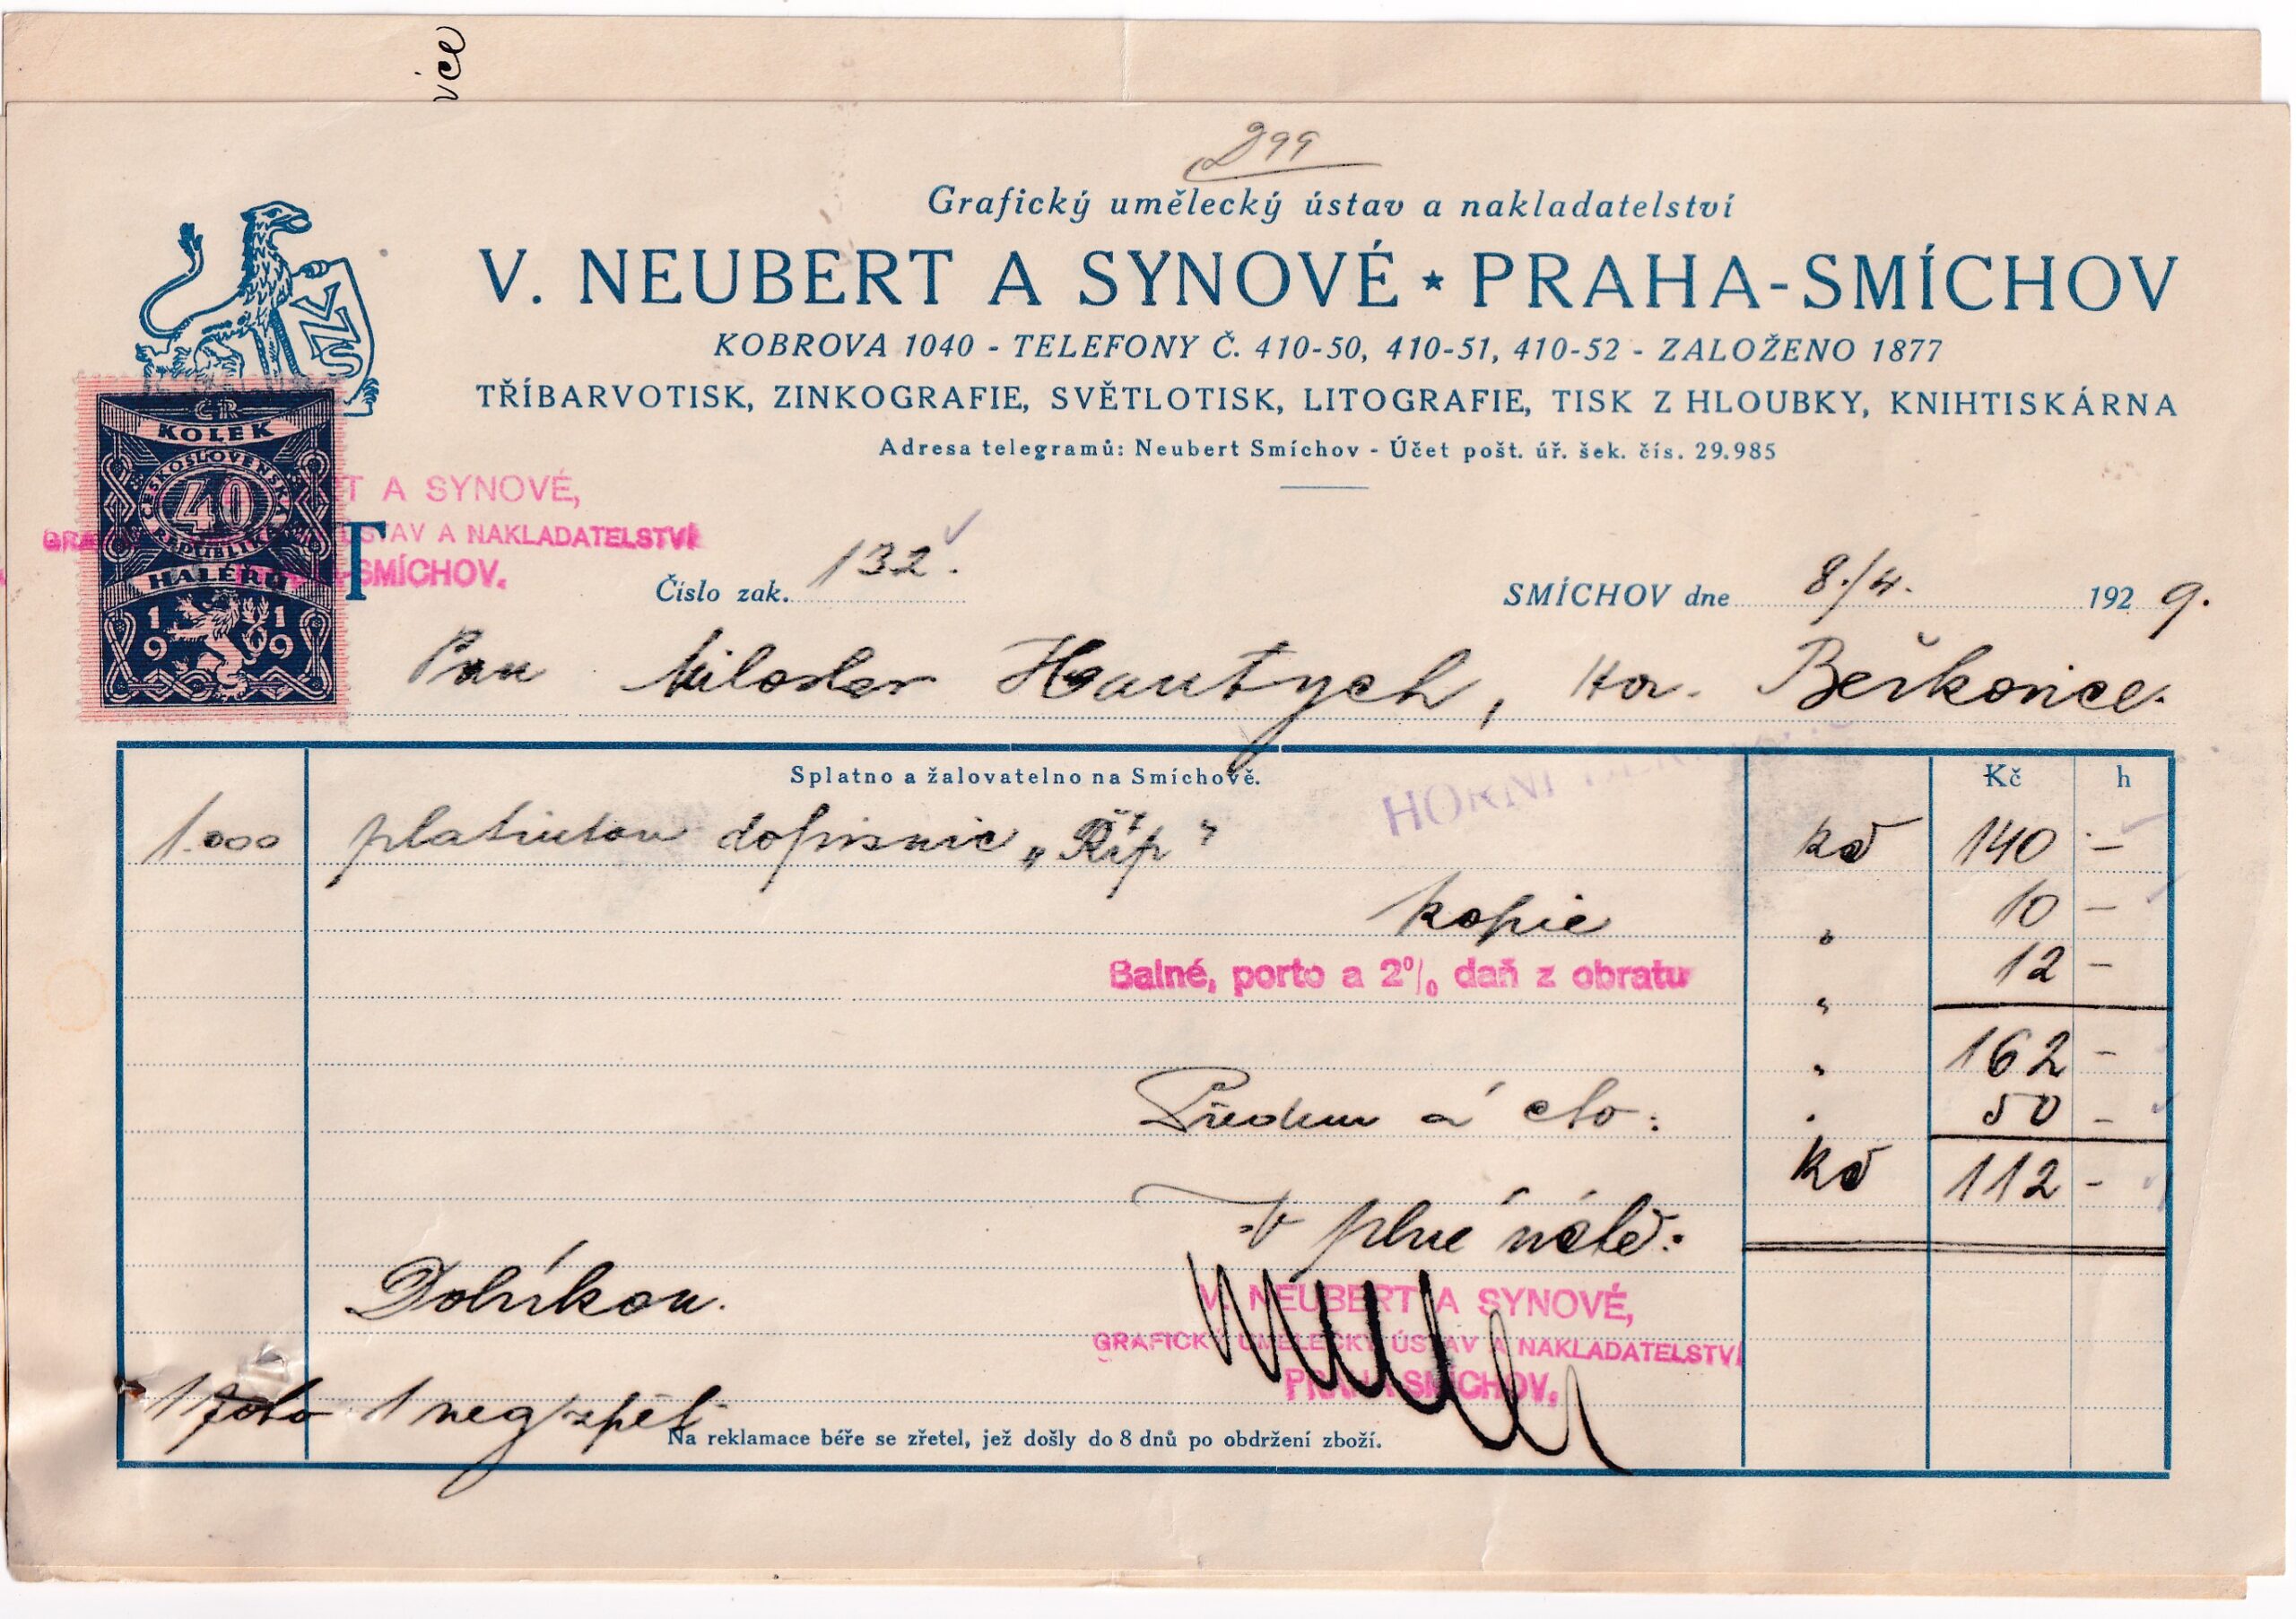 vice
299
Grafický umělecký ústav a nakladatelství
V. NEUBERT A SYNOVÉ ★ PRAHA-SMÍCHOV
KOBROVA 1040 - TELEFONY Č. 410-50, 410-51, 410-52 - ZALOŽENO 1877
TŘÍBARVOTISK, ZINKOGRAFIE, SVĚTLOTISK, LITOGRAFIE, TISK Z HLOUBKY, KNIHTISKÁRNA
Adresa telegramů: Neubert Smíchov - Účet pošt. úř. šek. čís. 29.985
VNS
ČR
KOLEK
ČESKOSLOVENSKÁ
40
REPUBLIKA
HALÉŘŮ
1919
T A SYNOVÉ,
ÚSTAV A NAKLADATELSTVÍ
SMÍCHOV.
T
Číslo zak. 132.
SMÍCHOV dne 8./4. 1929.
Pan Miloslav Hautych, Hor. Beřkovice.
Splatno a žalovatelno na Smíchově.
Kč h
HORNÍ
1.000 platinton dopisnic „Říp" Kč 140 –
kopie " 10 –
Balné, porto a 2% daň z obratu " 12 –
" 162 –
Předem á cto: " 50 –
Kč 112 –
Dobírkou.
V. NEUBERT A SYNOVÉ,
GRAFICKÝ UMĚLECKÝ ÚSTAV A NAKLADATELSTVÍ
PRAHA-SMÍCHOV.
1 foto 1 neg zpět
Na reklamace béře se zřetel, jež došly do 8 dnů po obdržení zboží.